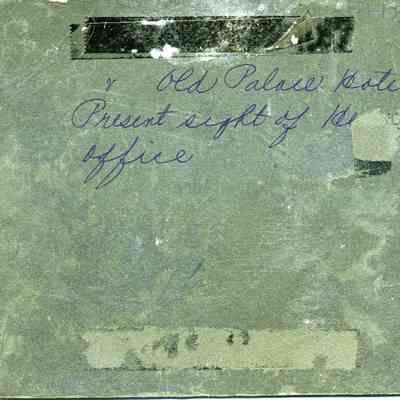 & Old Palace Hote
Present sight of He
office